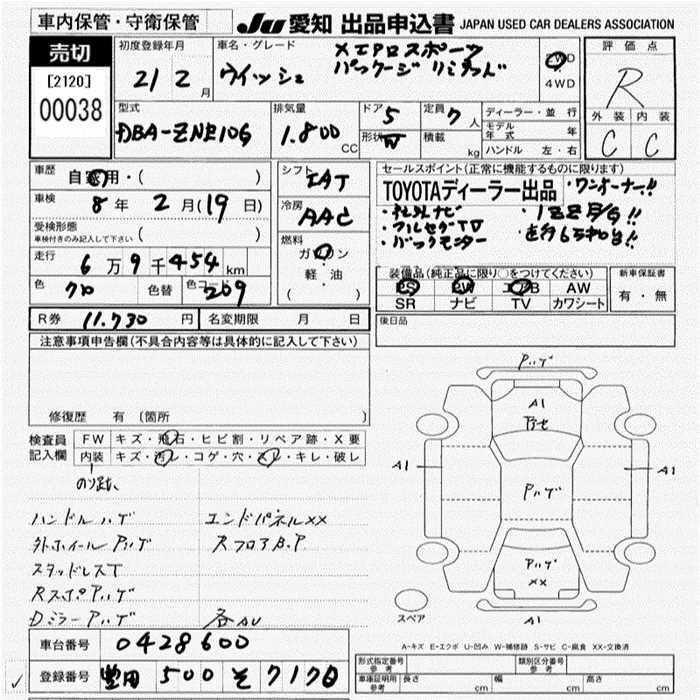 車内保管・守衛保管
Ju 愛知 出品申込書 JAPAN USED CAR DEALERS ASSOCIATION
売切
[2120]
00038
初度登録年月
21 2 月
車名・グレード
ウイッシュ
Xエアロスポーツ
パッケージ リミテッド
4WD
評価点
R
外装 内装
C C
型式
DBA-ZNE10G
排気量
1.800 CC
ドア 5
形状 W
定員 7 人
積載 kg
ディーラー・並行
モデル年式 年
ハンドル 左・右
車歴
自家用・( )
車検
8 年 2 月(19 日)
受検形態
車検付きのみ記入して下さい ( )
走行
6 万 9 千 454 km
色 クロ 色替 色コード 209
シフト
IAT
冷房
AAC
燃料
ガソリン
軽・油
( )
セールスポイント(正常に機能するものに限ります)
TOYOTAディーラー出品 ・ワンオーナー!!
・社外ナビ
・フルセグTV
・バックモニター
装備品(純正品に限り○をつけてください)
PS PW エアB AW
SR ナビ TV カワシート
新車保証書
有・無
後日品
R券 11.730 円 名変期限 月 日
注意事項申告欄(不具合内容等は具体的に記入して下さい)
修復歴 有 〔箇所 〕
検査員
記入欄
FW キズ・飛石・ヒビ割・リペア跡・X要
内装 キズ・汚レ・コゲ・穴・スレ・キレ・破レ
のり跡、
ハンドルハゲ
外ホイールPハゲ
スタッドレスT
RスポPハゲ
DミラーPハゲ
エンドパネルXX
RフロアB.P
各AU
Pハゲ
A1
A1
A1
Pハゲ
Pハゲ
XX
A1
スペア
A-キズ E-エクボ U-凹み W-補修跡 S-サビ C-腐食 XX-交換済
車台番号 0428600
登録番号 豊田 500 そ 7170
形式指定番号
参考
類別区分番号
参考
車庫証明用
参考
長さ cm 幅 cm 高さ cm